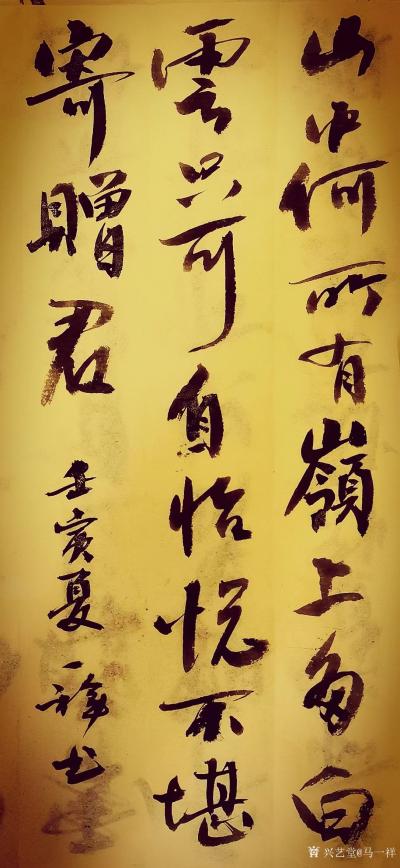 山中何所有嶺上多白
雲只可自怡悦不堪
寄贈君
壬寅夏一祥书
兴艺堂@马一祥